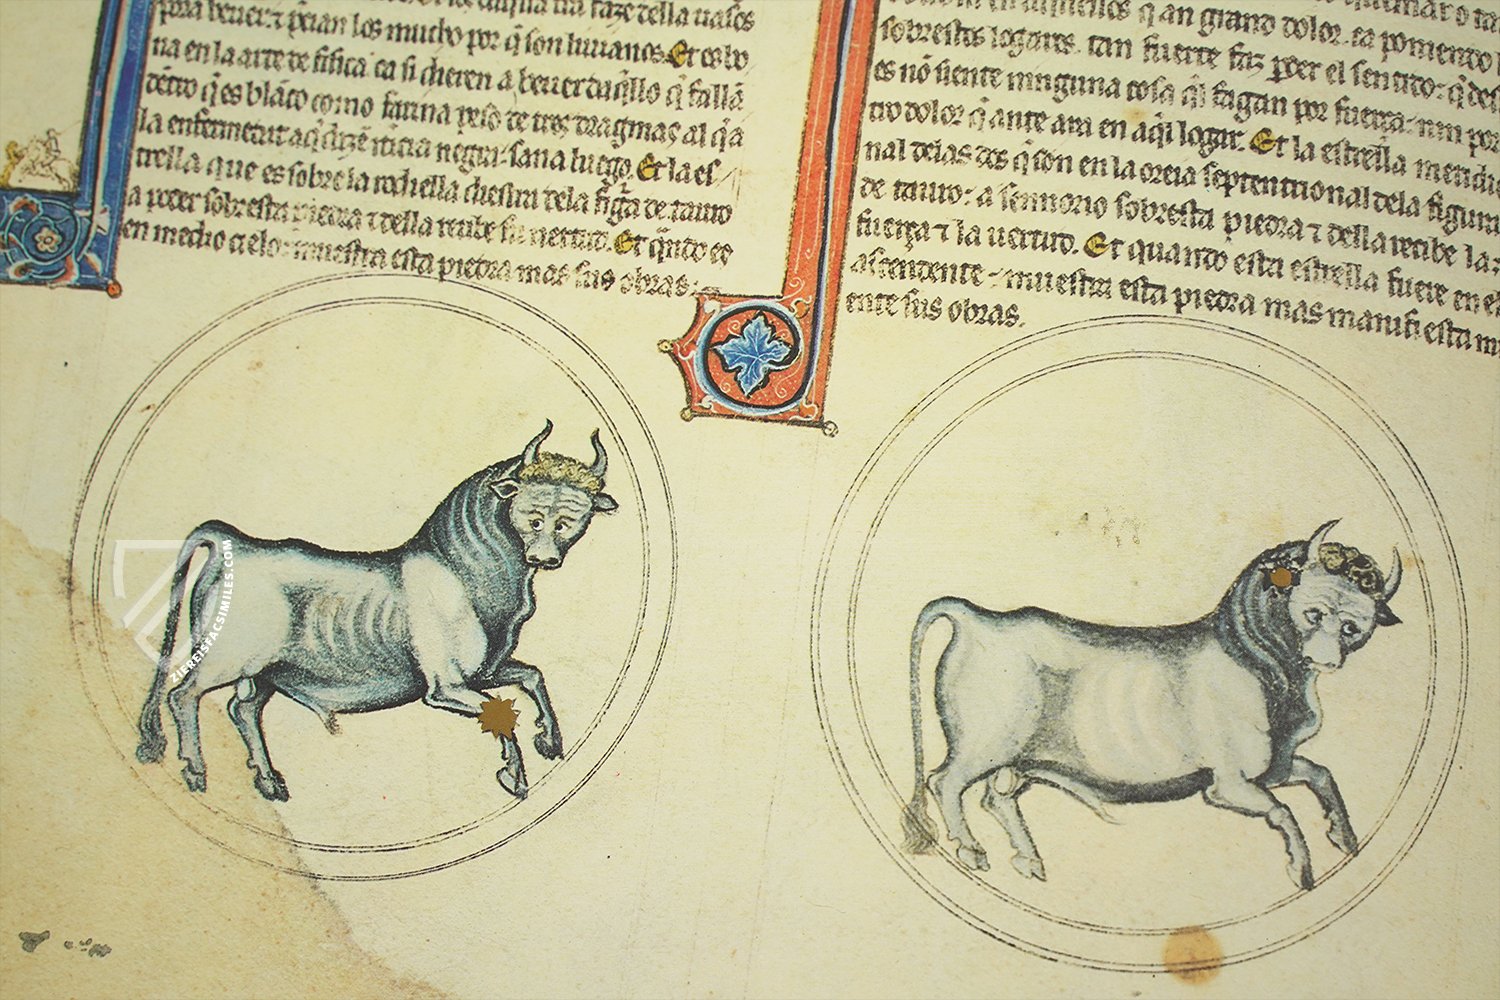 para beuer: τ precian los mucho por q̄ son liuianos. Et colo
na en la arte de fisica. ca si dieren a beuer daq̄llo q̄ fallā
dētro q̄ es blāco como farina peso de tres dragmas al q̄ a
la enfermetat aq̄ dizē itiricia negra: sana luego. Et la es
trella que es sobre la rodiella diestra dela figᵃra de tauro
a poder sobresta piedra τ della recibe su uertud. Et q̄ndo es
en medio cielo: muestra esta piedra mas sus obras.
sobrestos logares. tan fuerte faz perder el sentido: q̄ des
es nō siente ninguna cosa q̄l fagan por fuerça: nin por
tio dolor q̄ ante aya en aq̄l logar. Et la estrella meridio
nal delas dos q̄ son en la oreia septentrional dela figura
de tauro: a sennorio sobresta piedra τ della recibe la
fuerça τ la uertud. Et quando esta estrella fuere en el
ascendente: muestra esta piedra mas manifiesta mi
ente sus obras.
ZIEREISFACSIMILES.COM